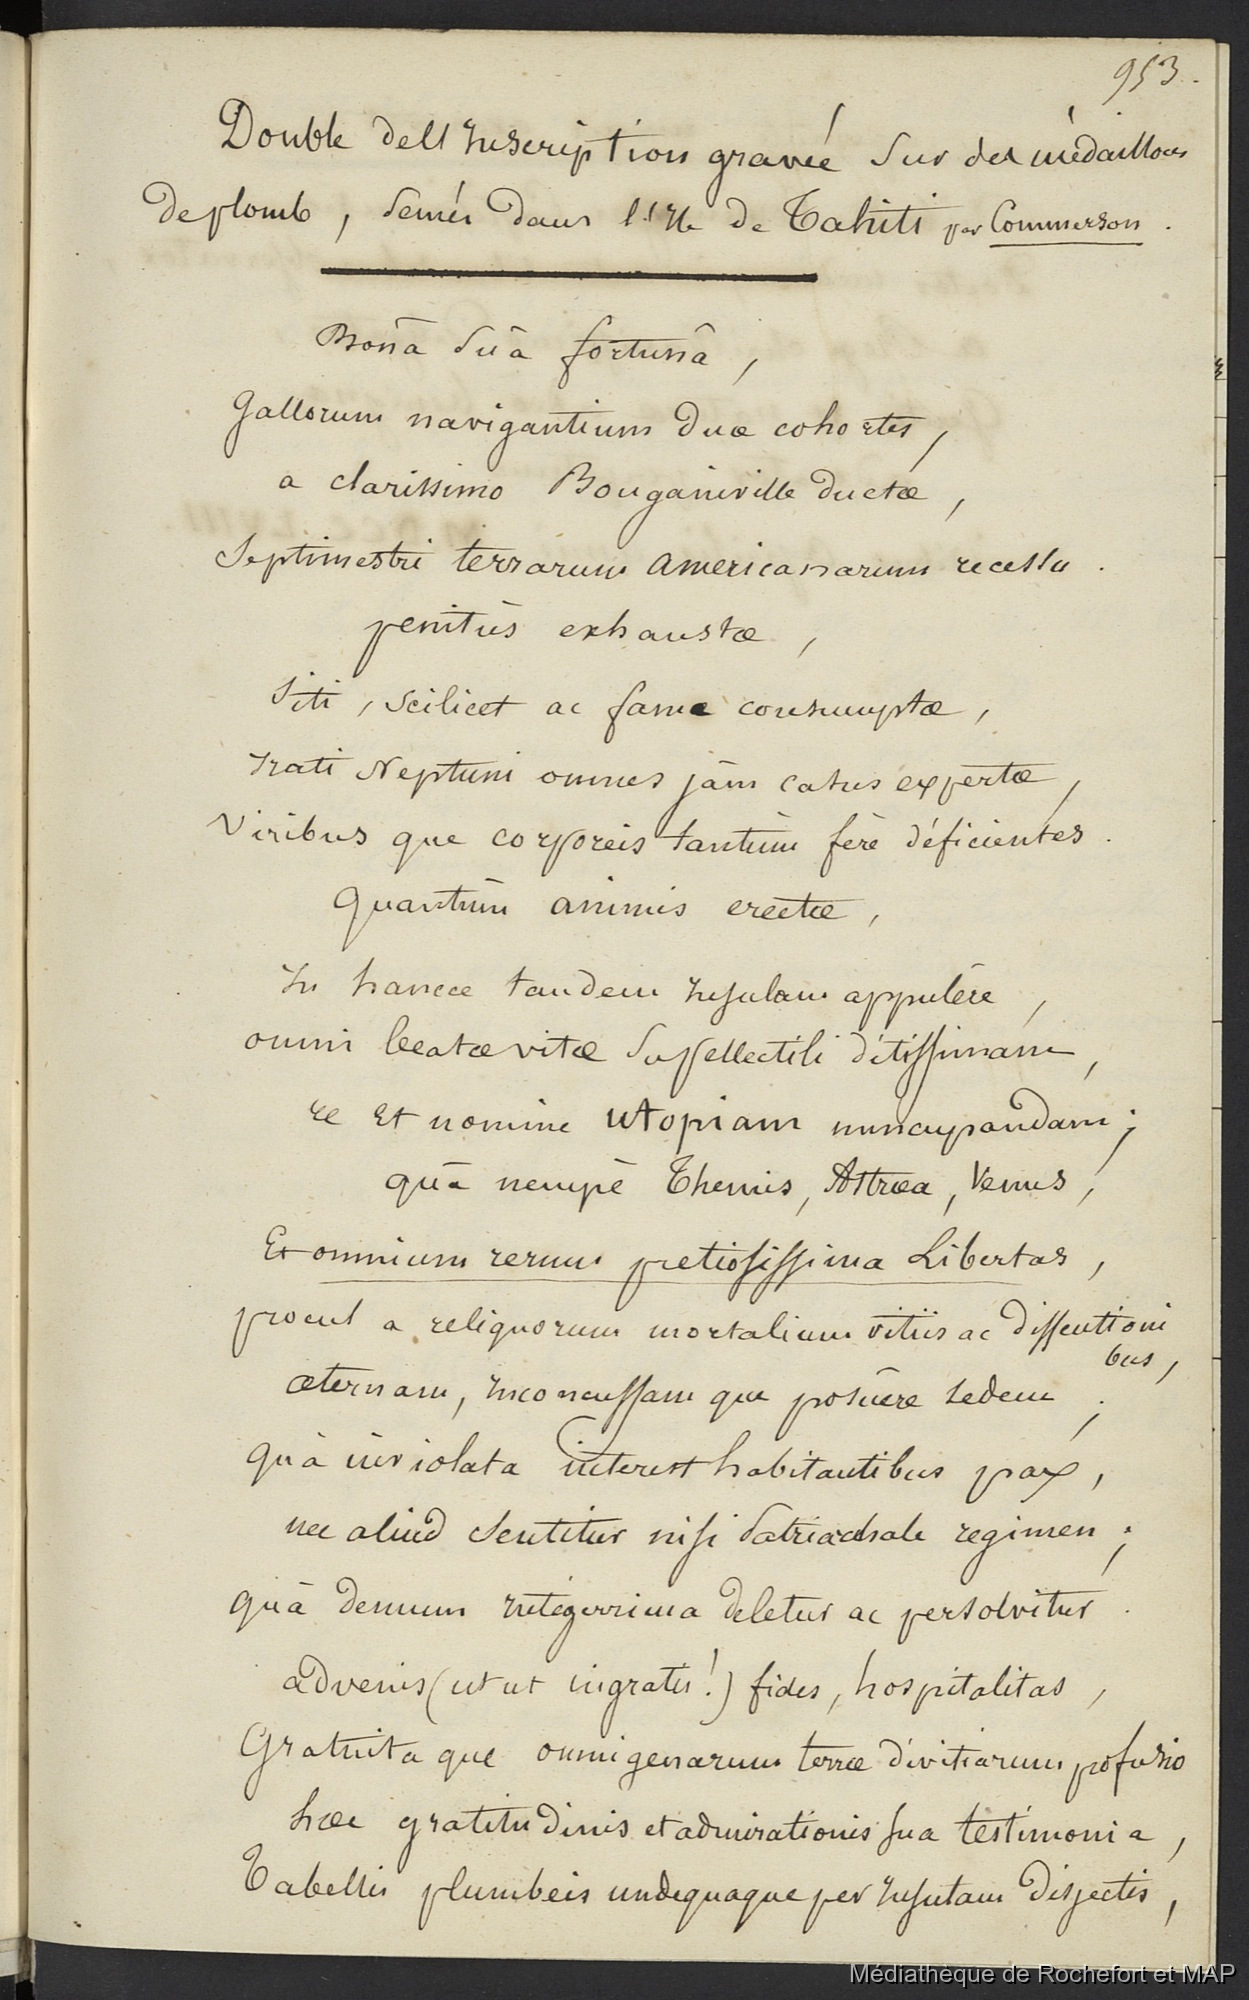 953.
Double de l'Inscription gravée sur des médaillons
de plomb, semés dans l'Ile de Tahiti par Commerson.
Bonâ suâ fortunâ,
Gallorum navigantium duæ cohortes,
a clarissimo Bougainville ductæ,
Septimestri terrarum americanarum recessu.
penitùs exhaustæ,
Siti, scilicet ac fame consumptæ,
Irati Neptuni omnes jàm casus expertæ,
Viribus que corporeis tantùm ferè déficientes.
Quantùm animis erectæ,
In hancce tandem Insulam appulêre,
omni beatæ vitæ supellectili ditissimam,
re Et nomine utopiam nuncupandam;
quâ nempè Themis, Astræa, Venus,
Et omnium rerum pretiosissima Libertas,
procul a reliquorum mortalium vitiis ac dissentioni
bus,
æternam, Inconcussam que posuêre sedem;
quà inviolata interest habitantibus pax,
nec aliud sentitur nisi Patriachale regimen;
quà demum Integerrima debetur ac persolvitur.
advenis (ut ut ingratis!) fides, hospitalitas,
Gratuita que omnigenarum terræ divitiarum profusio
hæc gratitudinis et admirationis sua testimonia,
Tabellis plumbeis undequaque per Insulam disjectis,
Médiathèque de Rochefort et MAP